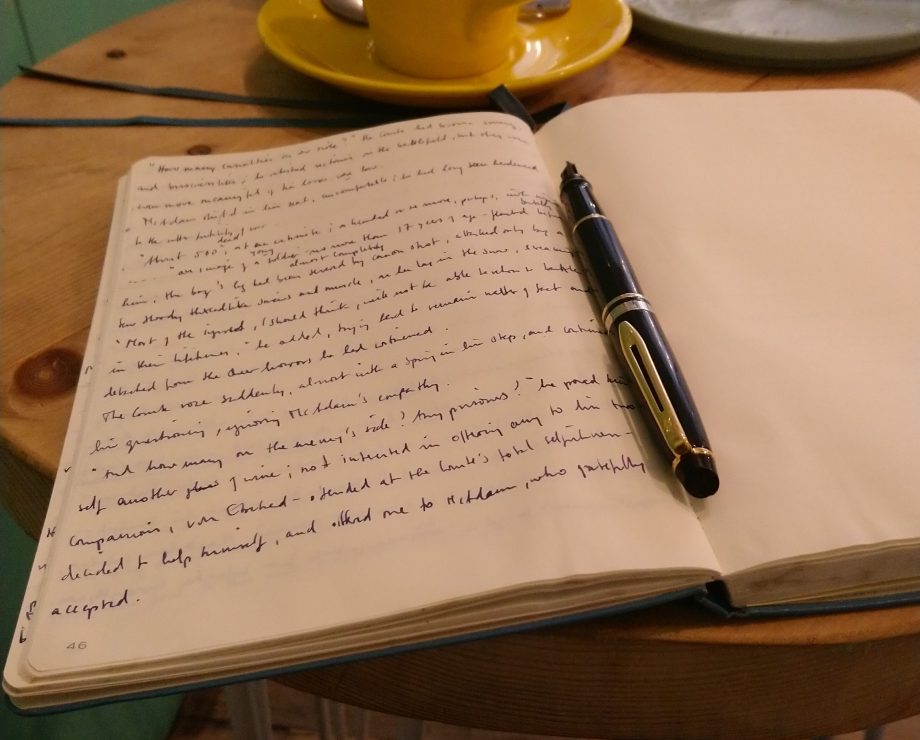 "How many casualties on our side?" The Comte had become
and businesslike; he relished victories on the battlefield, but they were
even more meaningful if the losses were low.
McAdam shifted in his seat, uncomfortable; he had long been hardened
to the utter futility of war.
"About 500 dead, at an estimate; a hundred or so more, perhaps, with
an image of a young soldier - no more than 17 years of age - flashed before
him; the boy's leg had been severed almost completely by canon shot, attached only by a
few bloody thread like sinews and muscle, as he lay in the sun,
"Most of the injured, I should think, will not be able to return to battle
in their lifetimes," he added, trying hard to remain matter of fact and
detached from the sheer horrors he had witnessed.
The Comte rose suddenly, almost with a spring in his step, and continued
his questioning, ignoring McAdam's empathy.
"And how many on the enemy's side? Any prisoners?" he poured him
self another glass of wine; not interested in offering any to his two
companions, von - offended at the Comte's total selfishness -
decided to help himself, and offered one to McAdam, who gratefully
accepted.
46